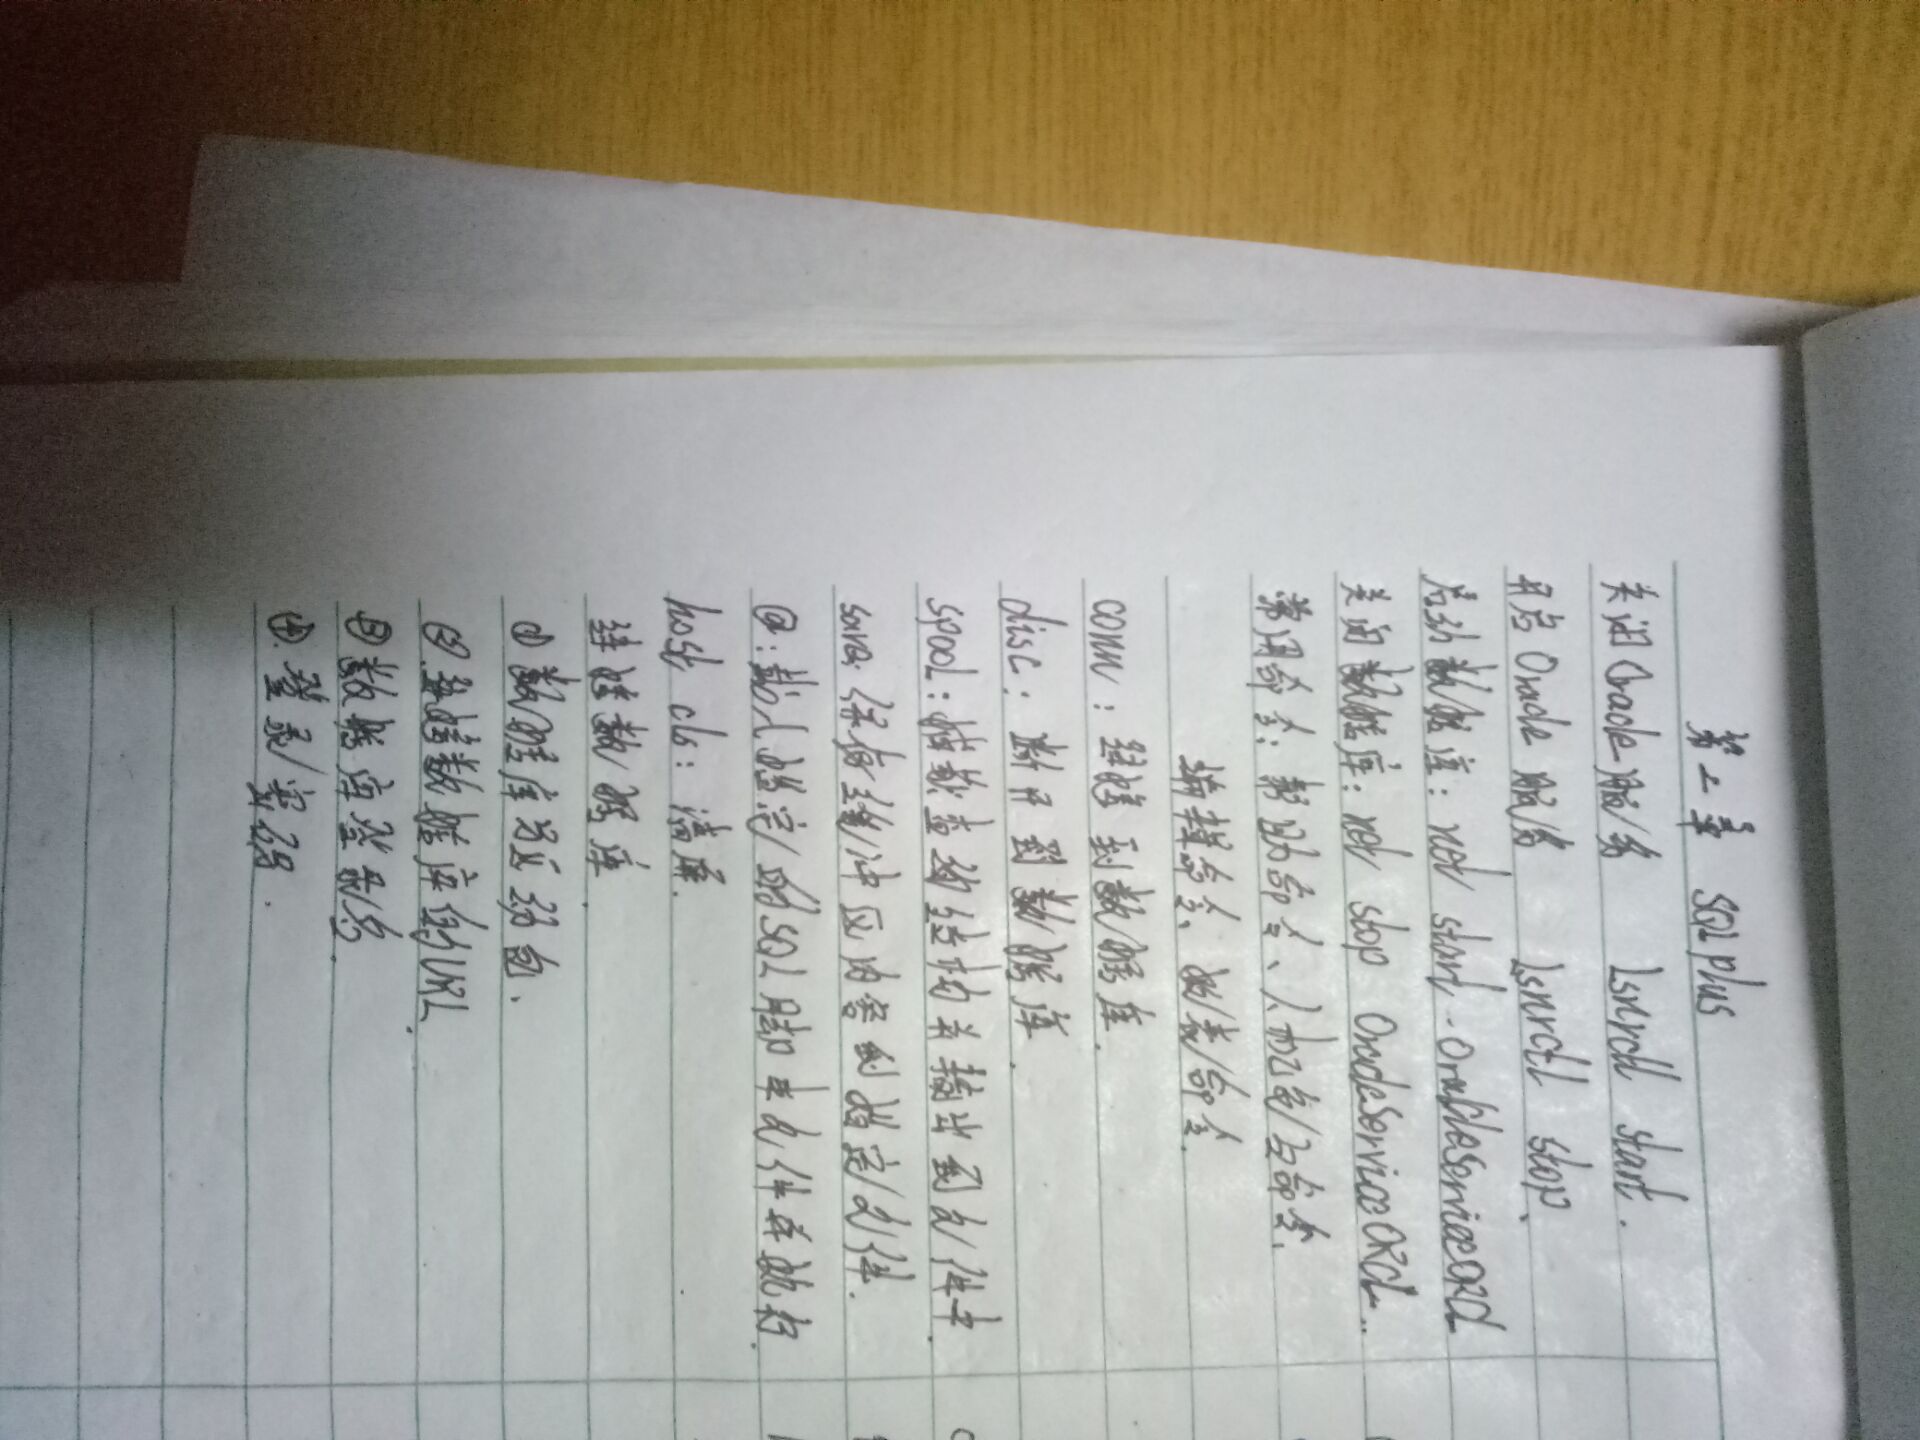 第二章 SQL plus
关闭Oracle服务 lsnrctl start.
开启Oracle服务 lsnrctl stop.
启动数据库: net start OracleServiceORCL
关闭数据库: net stop OracleServiceORCL..
常用命令: 帮助命令、人机交互命令.
编辑命令、
conn: 连接到数据库.
disc: 断开到数据库.
spool: 并输出到文件中.
save: 保存缓冲区内容到指定文件.
@: 载入指定的SQL脚本文件并执行.
host cls: 清屏.
连接数据库.
① 数据库
② 连接数据库的URL.
③ 数据库登录名.
④ 登录密码.